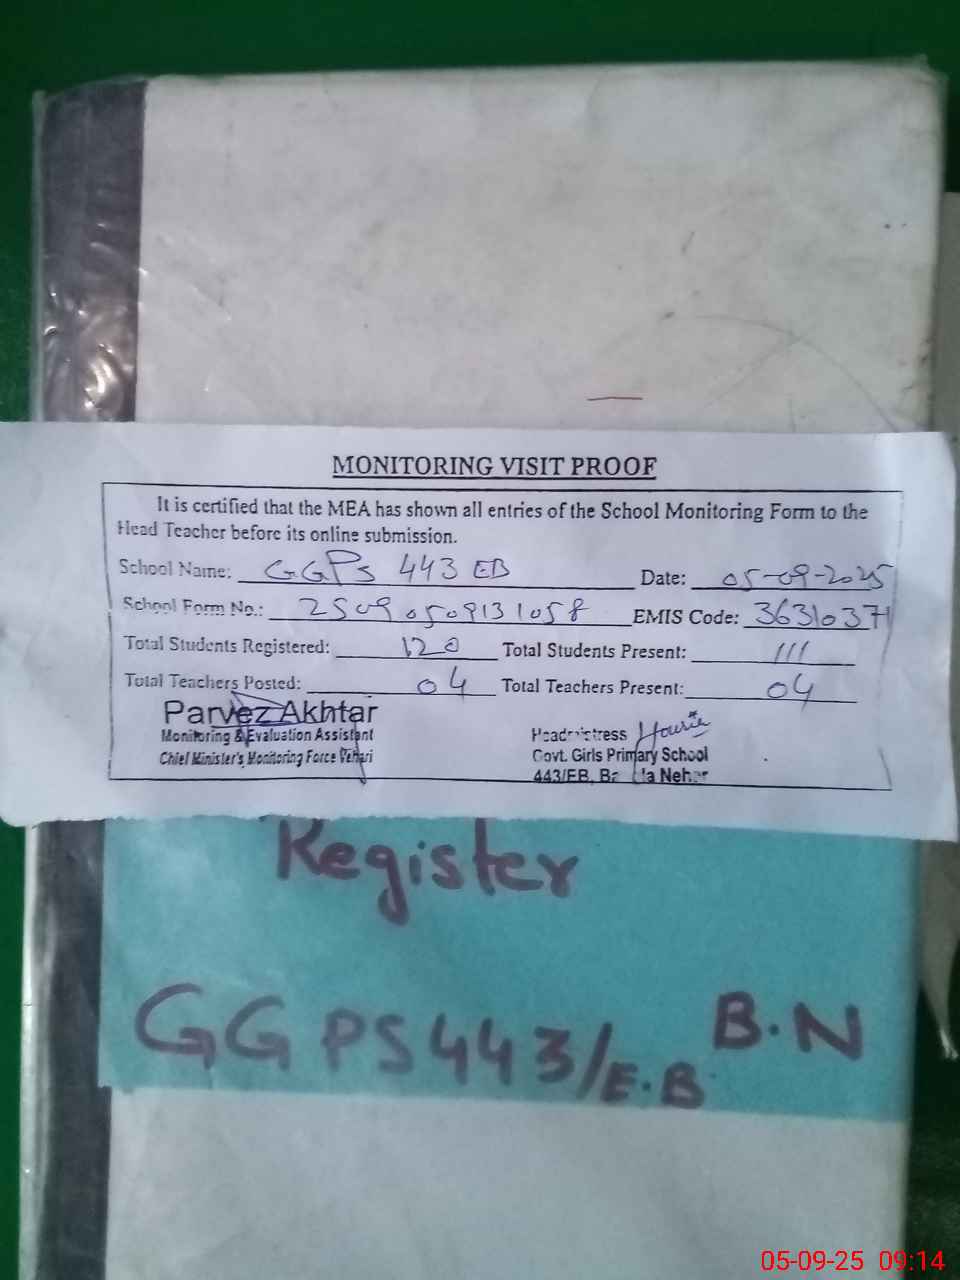 MONITORING VISIT PROOF
It is certified that the MEA has shown all entries of the School Monitoring Form to the
Head Teacher before its online submission.
School Name: GGPS 443 EB Date: 05-09-2025
School Form No.: 25090509131058 EMIS Code: 36310371
Total Students Registered: 120 Total Students Present: 111
Total Teachers Posted: 04 Total Teachers Present: 04
Parvez Akhtar
Monitoring & Evaluation Assistant
Chief Minister's Monitoring Force Vehari
Headmistress
Govt. Girls Primary School
443/EB,
Register
GGPS 443/E.B B.N
05-09-25 09:14